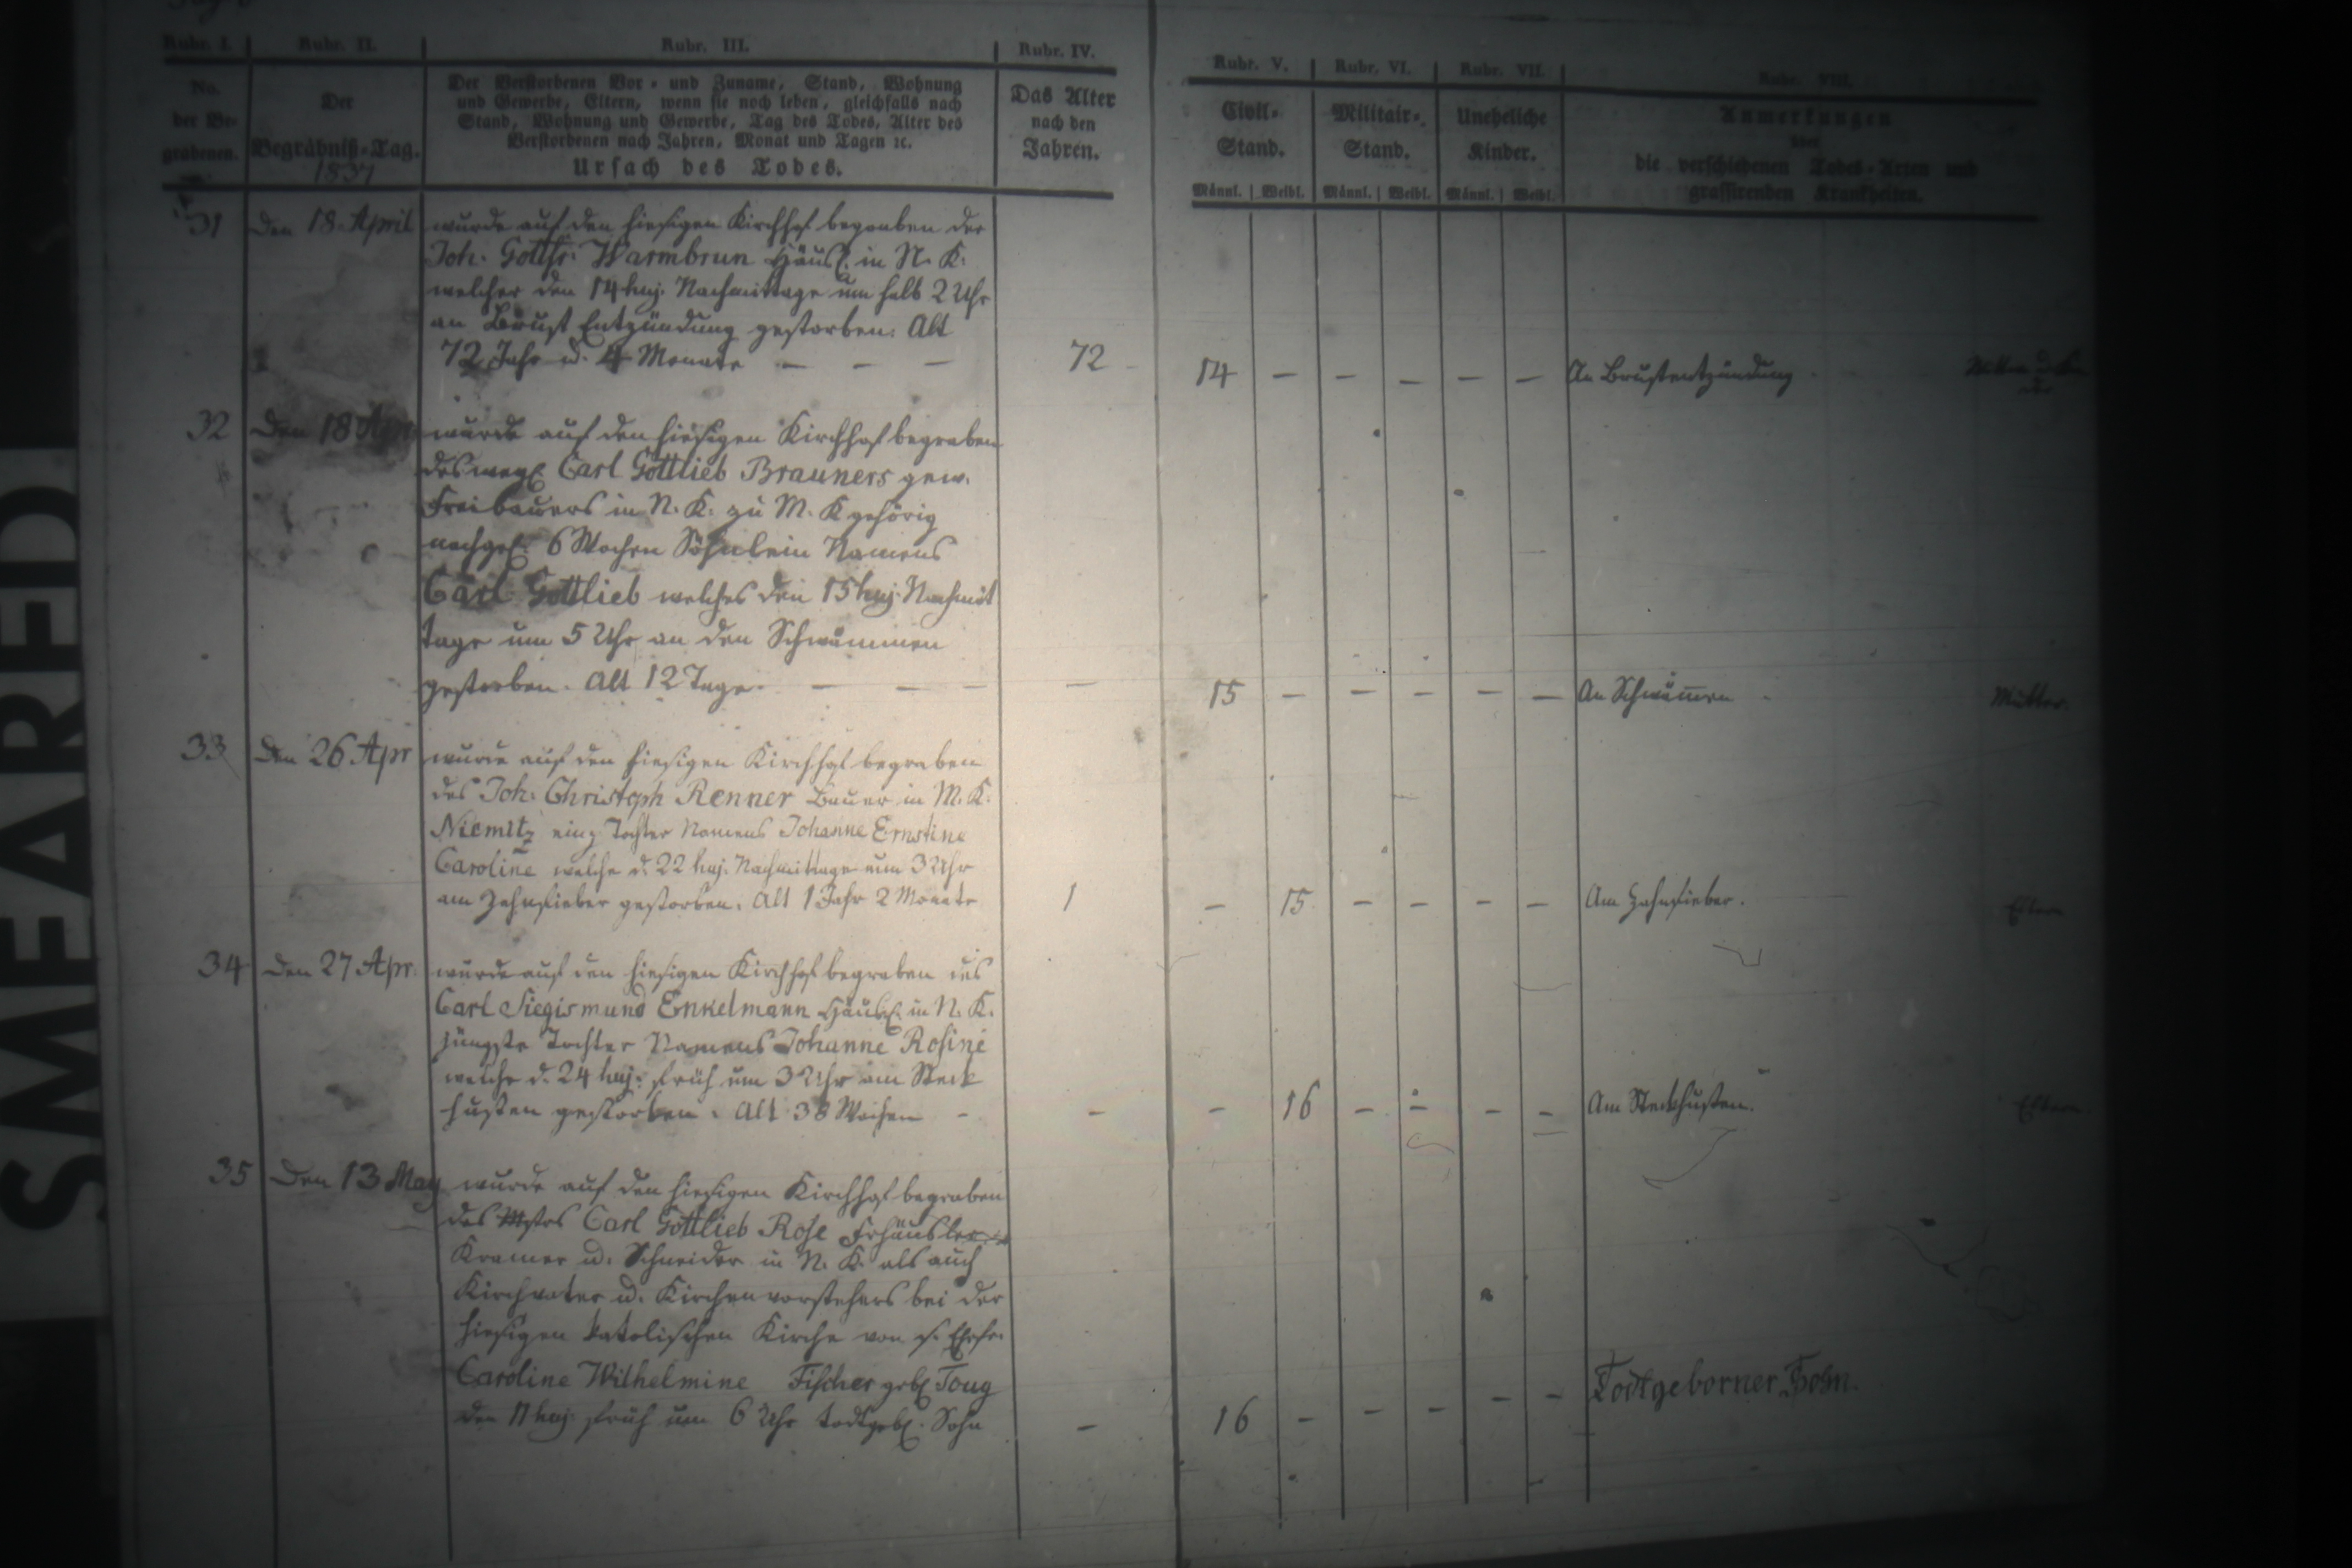 Rubr. I.
Rubr. II.
Rubr. III.
Rubr. IV.
Rubr. V.
Rubr. VI.
Rubr. VII.
Rubr. VIII.
No.
der Be-
grabenen.
Der
Begräbniß-Tag.
1837
Der Verstorbenen Vor- und Zuname, Stand, Wohnung
und Gewerbe, Eltern, wenn sie noch leben, gleichfalls nach
Stand, Wohnung und Gewerbe, Tag des Todes, Alter des
Verstorbenen nach Jahren, Monat und Tagen ꝛc.
Ursach des Todes.
Das Alter
nach den
Jahren.
Civil-
Stand.
Männl. Weibl.
Militair-
Stand.
Männl. Weibl.
Uneheliche
Kinder.
Männl. Weibl.
Anmerkungen
über
die verschiedenen Todes-Arten und
grassirenden Krankheiten.
31 Den 18. April wurde auf den hiesigen Kirchhof begraben der
Joh. Gottfr. Warmbrun Häusl. in N. K.
welcher den 14 huj. Nachmittage um halb 2 Uhr
an Brust Entzündung gestorben. Alt
72 Jahr u. 4 Monate — — — 72 14 — — — — — An Brustentzündung
32 Den 18 Apr wurde auf den hiesigen Kirchhof begraben
des weyl. Carl Gottlieb Brauners gew.
Freibauers in N. K. zu M. K gehörig
nachgel. 6 Wochen Söhnlein Namens
Carl Gottlieb welches den 15 huj. Nachmit
tage um 5 Uhr an den Schwämmen
gestorben. Alt 12 Tage. — — — — 15 — — — — — An Schwämmen Mutter.
33 Den 26 Apr wurde auf den hiesigen Kirchhof begraben
des Joh. Christoph Renner Bauer in M. K.
Niemitz einz Tochter Namens Johanne Ernstine
Caroline welche d. 22 huj. Nachmittage um 3 Uhr
am Zahnfieber gestorben. Alt 1 Jahr 2 Monate 1 — 15 — — — — Am Zahnfieber. Eltern
34 Den 27 Apr. wurde auf den hiesigen Kirchhof begraben des
Carl Siegismund Enkelmann Häusl. in N. K.
jüngste Tochter Namens Johanne Rosine
welche d. 24 huj. früh um 3 Uhr am Steck
husten gestorben. Alt 38 Wochen — — — 16 — — — — Am Steckhusten. Eltern
35 Den 13 May wurde auf den hiesigen Kirchhof begraben
des Mstrs Carl Gottlieb Rose Frhäusler
Kramer u. Schneider in N. K. als auch
Kirchvater u. Kirchenvorstehers bei der
hiesigen katolischen Kirche von s. Ehefr.
Caroline Wilhelmine Fischer geb.
den 11 huj. früh um 6 Uhr todtgeb. Sohn — 16 — — — — — Todtgeborner Sohn.
SMEARED